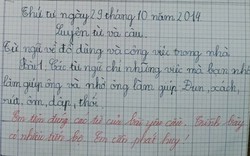 Thứ tư ngày 29 tháng 10 năm 2019
Luyện từ và câu
Từ ngữ về đồ dùng và công việc trong nhà
Bài 1: Các từ ngữ chỉ những việc mà bạn nhỏ
làm giúp ông và nhờ ông làm giúp Đun, xách,
rút, ôm, dập, thổi.
Em tìm đúng các từ của bài yêu cầu. Trình bày
có nhiều tiến bộ. Em cần phát huy!